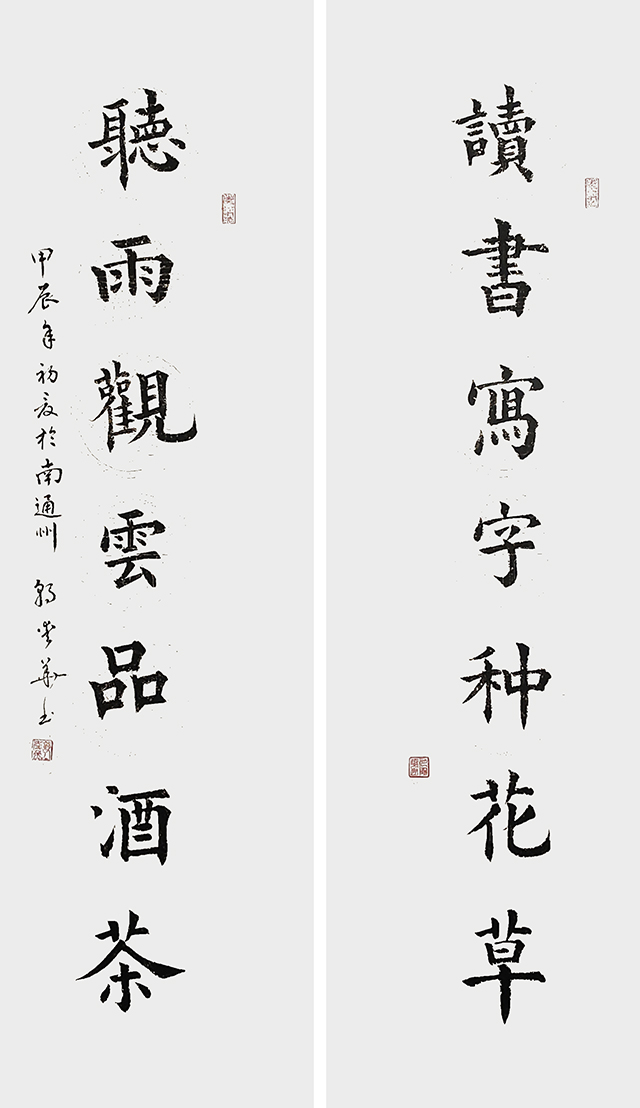 讀書寫字种花草
聽雨觀雲品酒茶
甲辰年初夏於南通州
華書